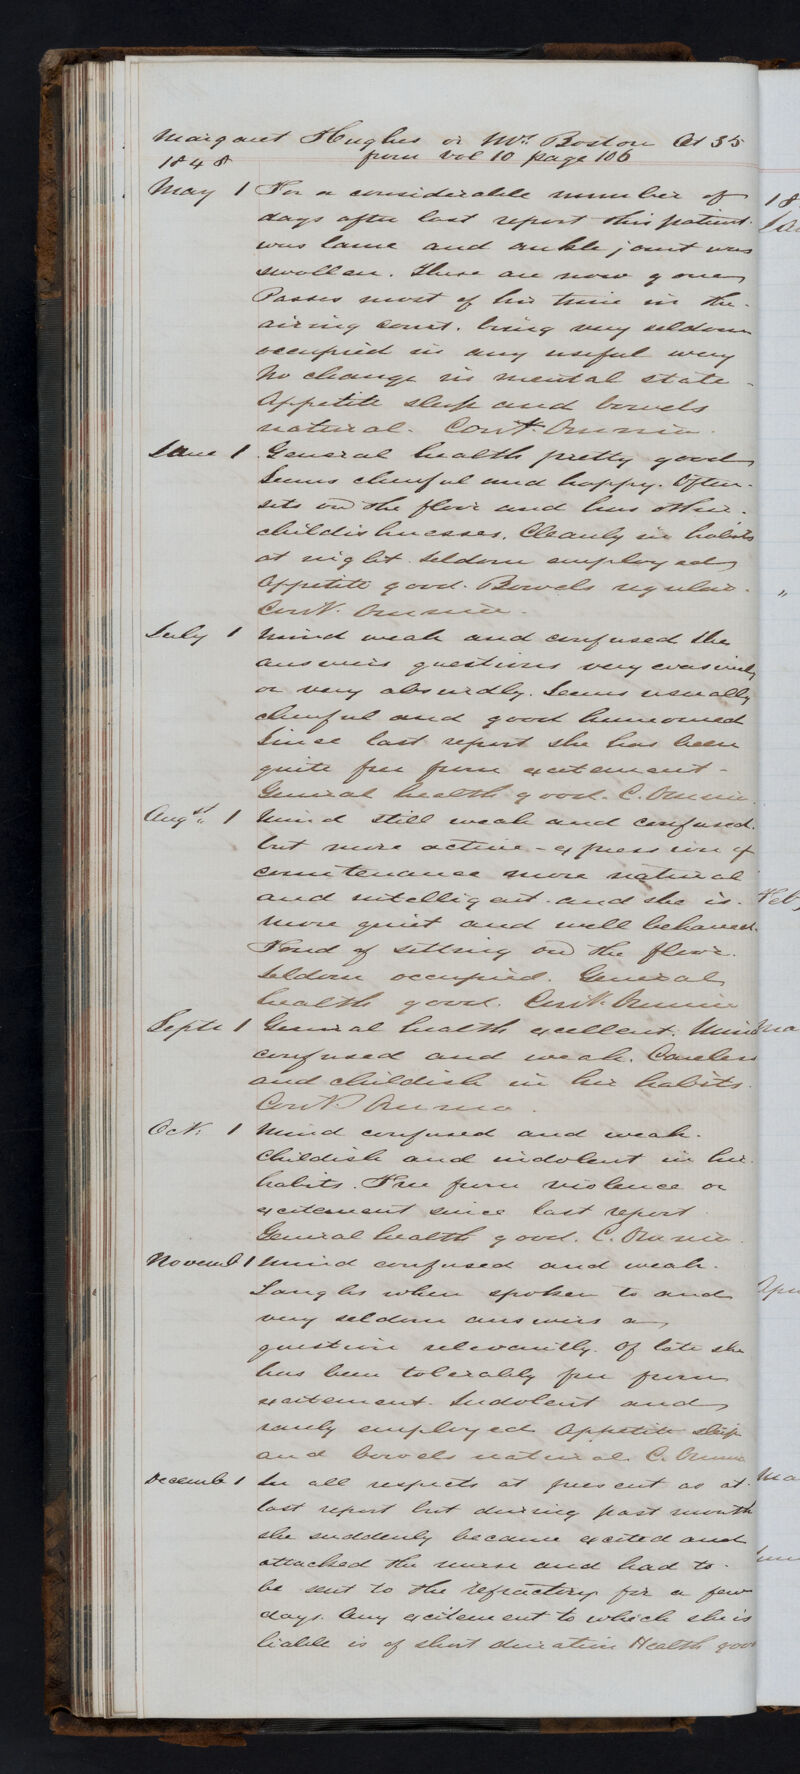 Margaret Hughes or Mrs Boston Æt 35
1848 from Vol 10 page 106
May 1 For a considerable number of
days after last report this patient
was lame and ankle joint was
swollen. These are now gone
Passes most of her time in the
airing court. being very seldom
occupied in any useful way
No change in mental state -
Appetite sleep and bowels
natural. Cont. Omnia.
June 1 General health pretty good
Seems cheerful and happy. Often
sits on the floor and has other
childishnesses. Cleanly in habits
at night. Seldom employed
Appetite good. Bowels regular.
Cont. Omnia.
July 1 Mind weak and confused She
answers questions very evasively
or very absurdly. Seems usually
cheerful and good humoured
Since last report she has been
quite free from excitement -
General health good. C. Omnia.
Augst. 1 Mind still weak and confused.
but more active - expression of
countenance more natural
and intelligent. and she is
more quiet and well behaved.
Fond of sitting on the floor.
Seldom occupied. General
health good. Cont. Omnia
Septr 1 General health excellent. Mind
confused and weak. Careless
and childish in her habits.
Cont. Omnia.
Oct. 1 Mind confused and weak.
Childish and indolent in her
habits. Free from violence or
excitement since last report.
General health good. C. Omnia.
Novemb 1 Mind confused and weak.
Laughs when spoken to and
very seldom answers a
question relevantly. Of late she
has been tolerably free from
excitement. Indolent and
rarely employed Appetite sleep
and bowels natural. C. Omnia
Decemb 1 In all respects at present as at
last report but during past month
she suddenly became excited and
attacked the nurse and had to
be sent to the refractory for a few
days. Any excitement to which she is
liable is of short duration Health good